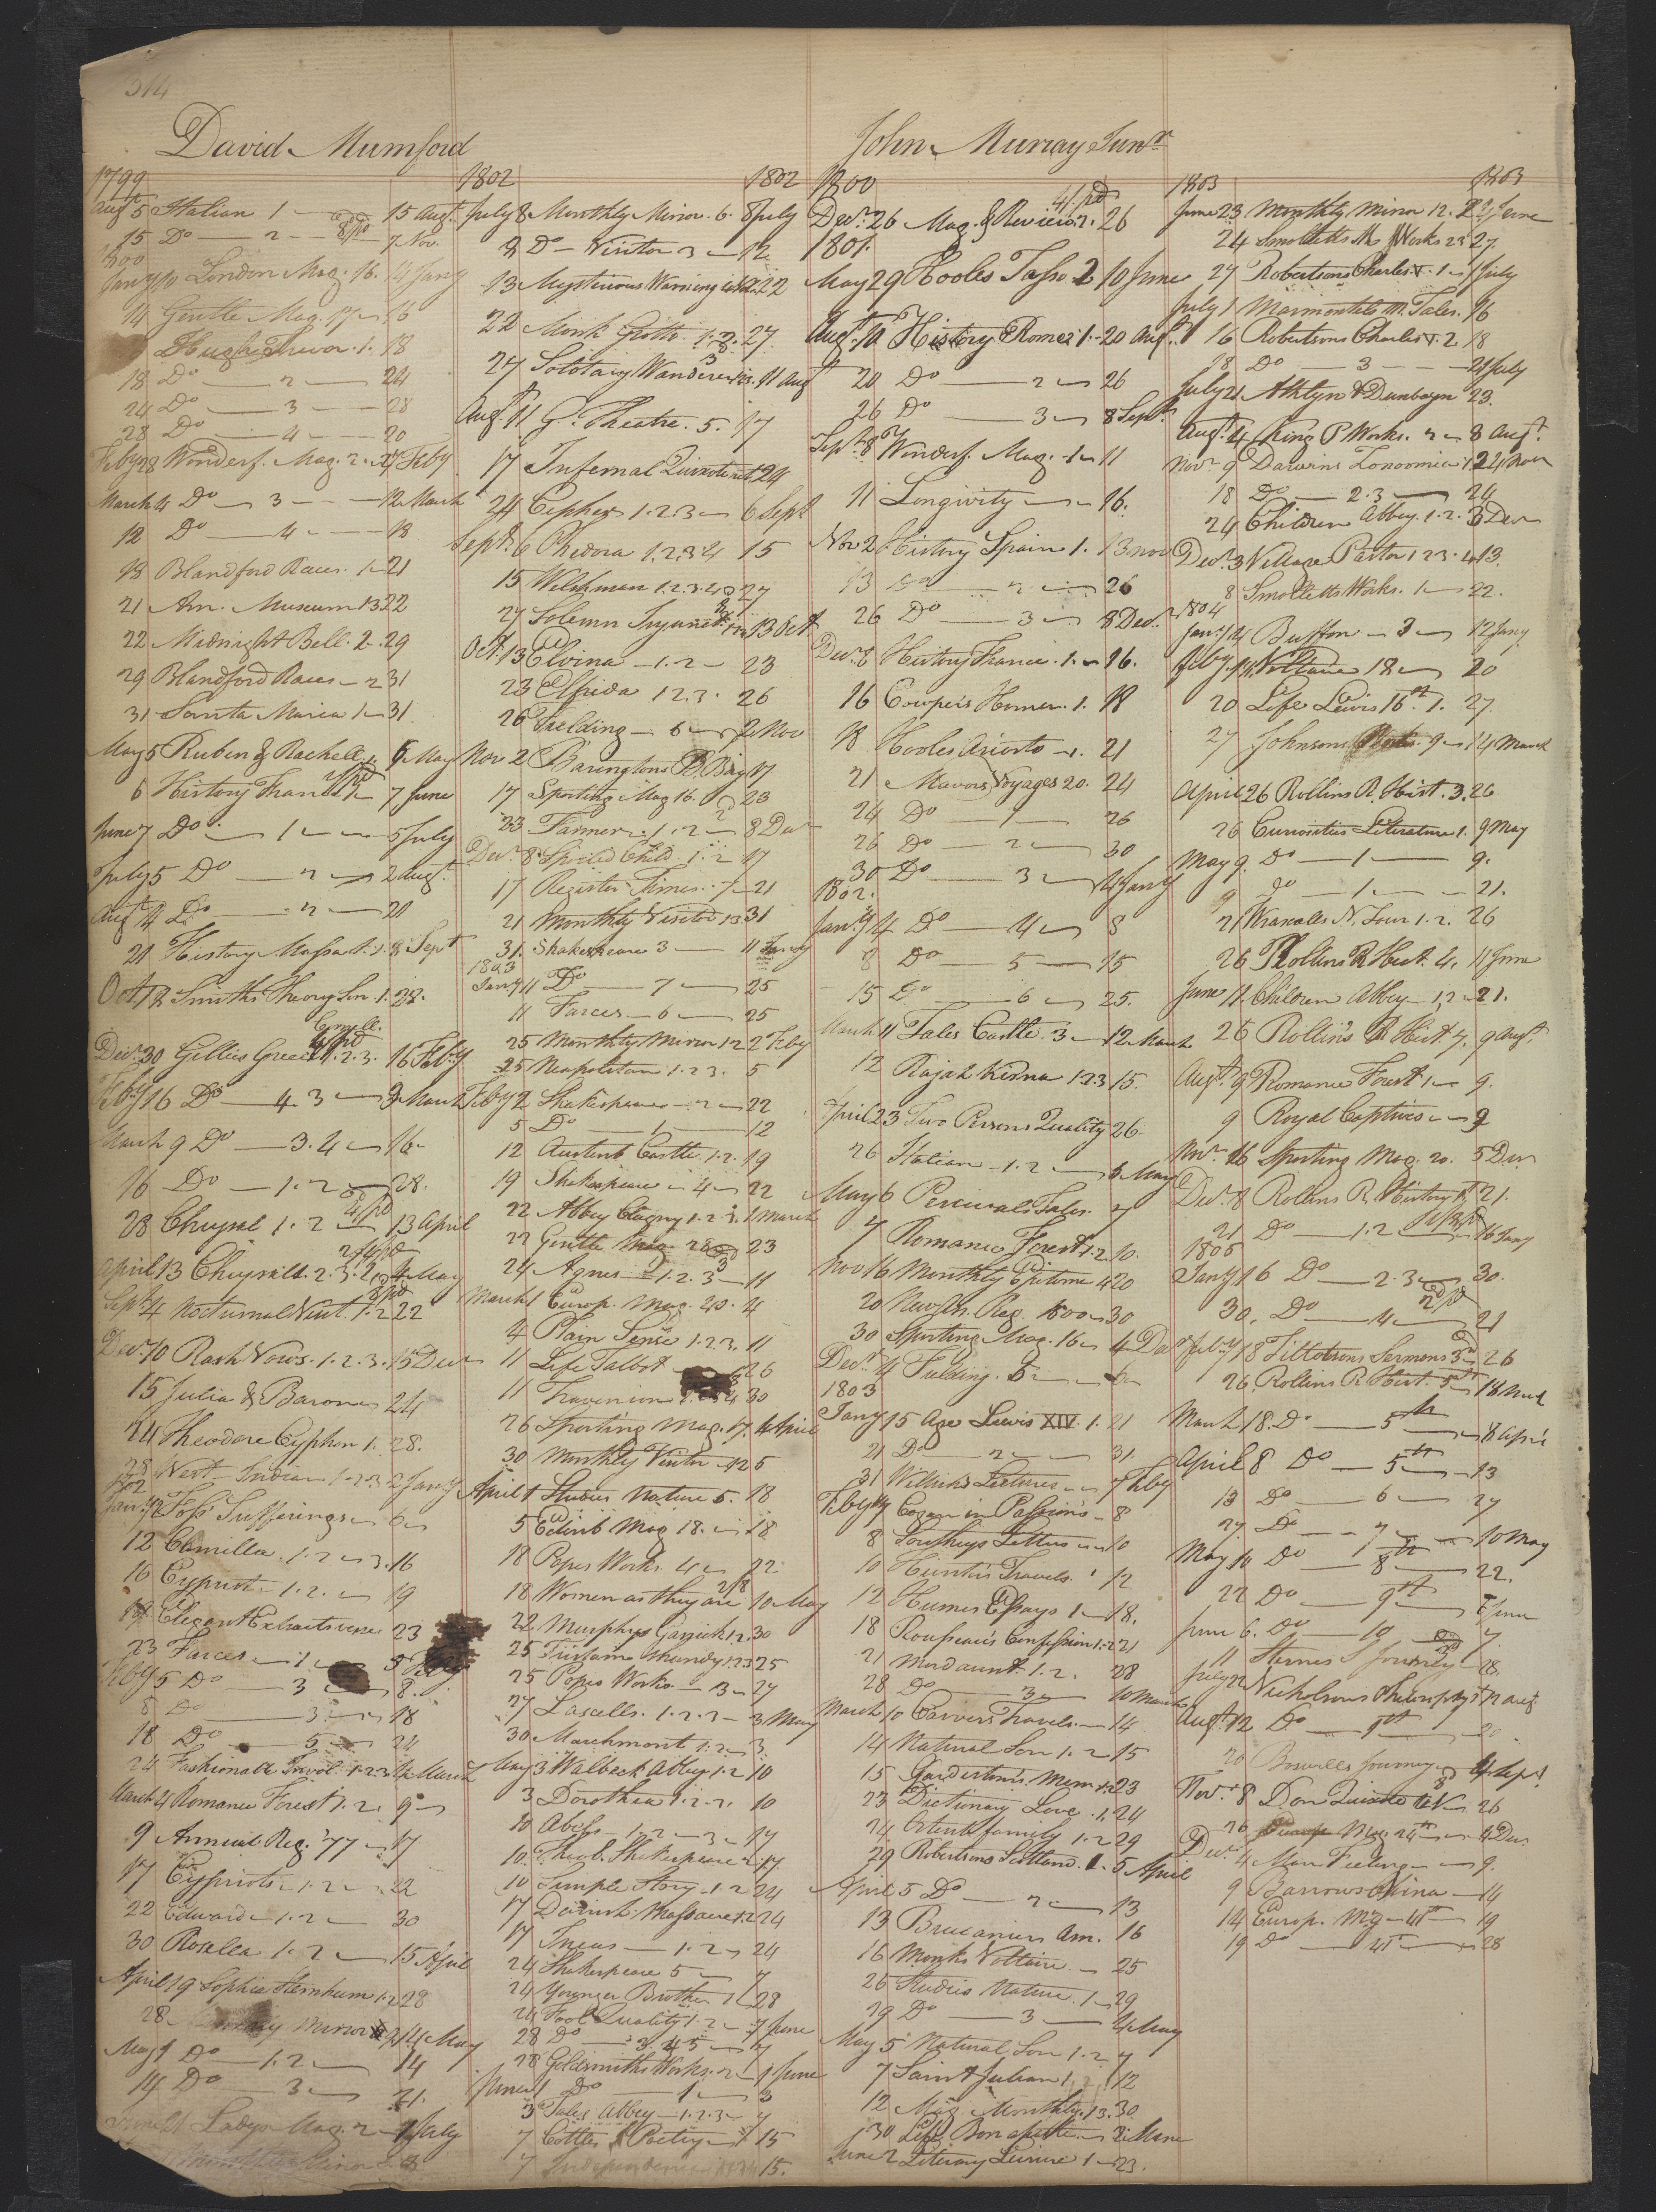 314
David Mumford
1799
Augt 5 Italian 1 — 15 Augt
15 Do — 2 — 7 Nov.
1800
Jany 10 London Mag. 16. 14 Jany
14 Gentle Mag. 16
Hugh Trevor. 1. 18
18 Do — 2 — 24
24 Do — 3 — 28
28 Do — 4 — 20
Feby 28 Wonderf. Mag. 2. Feby
March 4 Do — 3 — 12 March
12 Do — 4 — 18
18 Blandford Races. 1 — 21
21 Am. Museum 13 22
22 Midnight Bell. 2. 29
29 Blandford Races — 2 31
31 Santa Maria 1 — 31
May 5 Ruben & Rachell 1. 6 May
6 History France 7 June
June 7 Do — 1 — 5 July
July 5 Do — 2 — 2 Augt.
Augt 4 Do — 2 — 21
21 History Massat. 1. 8 Sept
Oct 18 Smiths Theory Sen. 1. 28.
Decr 30 Gillies Greece 1. 2. 3. 16 Feby
Feby 16 Do — 4. 3 — 9 March
March 9 Do — 3. 4 — 16
16 Do — 1. 2 — 28.
28 Chrysal 1. 2 — 13 April
April 13 Chrysal 2. 3. May
Sept 4 Nocturnal Visit. 1. 2 22
Decr 10 Rash Vows. 1. 2. 3. 15 Decr
15 Julia & Baron 24
24 Theodore Cyphon 1. 28.
28 West Indian 1. 2. 3 2 Jany
1802
Jany Foss Sufferings — 6
12 Camilla. 1. 2. 3. 16
16 Cypriots 1. 2. — 19
19 Elegant Extracts verse 23
23 Farces — 1. — 5 Feby
Feby 5 Do — 3 — 8.
8 Do — 3 — 18
18 Do — 5 — 24
24 Fashionable Invol. 1. 2. 3. March
March 4 Romance Forest 1. 2. 9
9 Annual Reg. 77 — 17
17 Cypriots — 1. 2 — 22
22 Edward — 1. 2 — 30
30 Rosella 1. 2 — 15 April
April 19 Sophia Sternheim 1. 2 28
28 Mirror May
May 1 Do — 1. 2 — 14
14 Do — 3 — 21.
Ladys Mag. 2 — July
1802 1802
July 8 Monthly Mirror. 6. 8 July
8 Do — Visitor 3 — 12
13 Mysterious Warning 22
22 Monk Groth 1. 2. 27.
27 Solotary Wanderer 11 Augt
Augt 11 G. Theatre. 5. 17
17 Infernal Quixote 24
24 Cepher 1. 2. 3 — 6 Sept
Sept. 6 Phedora 1. 2. 3. 4 15
15 Welshman 1. 2. 3. 4. 27
27 Solemn Injunct. 13 Oct
Oct. 13 Elvina — 1. 2 — 23
23 Elfrida 1. 2. 3. 26
26 Fielding — 6 — 2 Nov
Nov 2 Baringtons B. Bay 17
17 Sporting Mag 16. 23
23 Farmer. 1. 2 — 8 Decr
Decr. 8 Spoiled Child 1. 2 17
17 Register Times. 7 — 21
21 Monthly Visitor 13 31
31. Shakespeare 3 — 11 Jany
1803
Jany 11 Do — 7 — 25
11 Farces — 6 — 25
25 Monthly Mirror 12 2 Feby
25 Neapolitan 1. 2. 3. 5
Feby 2 Shakespeare — 2 — 22
5 Do — 1 — 12
12 Austenb Castle. 1. 2. 19
19 Shakespeare — 4 — 22
22 Abbey Clugny 1. 2. 3. 1 March
22 Gentle Mag 23
24 Agnes — 1. 2. 3 — 11
March 1 Europ. Mag. 40. 4
4 Plain Sense 1. 2. 3. 11
11 Life Talbot 26
11 30
26 Sporting Mag. 17. 4 April
30 Monthly Visitor — 12 5
April 1 Studies Nature 5. 18
5 Edinb Mag 18. — 18
18 Popes Works 4 — 22
18 Women as they are 10 May
22 Murphys Garrick 1. 2. 30
25 Tristam Shandy 1. 2. 3 25
25 Popes Works — 3 — 27
27 Lascells. 1. 2. 3 — 3 May
30 Marchmont 1. 2 — 3
May 3 Walbeck Abbey 1. 2 10
3 Dorothea 1. 2. 10
10 Abess — 1. 2 — 3 — 17
10. Theob. Shakespeare 17
10 Simple Story. 1. 2 24
17 Danish Massacre 1. 2 24
17 — 1. 2 — 24
24 Shakespeare 5 — 7
24 Younger Brother 28
24 Fool Quality 1. 2 — 7 June
28 Do — 3. 4 5 — 7
28 Goldsmiths Works. 2 — 1 June
June 1 Do — 1 — 3
3 Tales Abbey — 1. 2. 3 — 7
7 Cottles Poetry — 15
7 Independence 15.
John Murray Junr
1800
Decr. 26 Mag. & Review. 2. 26
1801.
May 29 Hooles Tasso 2 10 June
Augt. 10 History Rome 1. 20 Augt.
20 Do — 2 — 26
26 Do — 3 — 8 Sept
Sept. 8 Wonderf. Mag. 1 — 11
11 Longivity — 16.
Nov 2 History Spain 1. 13 Nov
13 Do — 2 — 26
26 Do — 3 — 8 Decr.
Decr. 8 History France. 1. — 16.
16 Cowpers Homer. 1. 18
18 Hooles Ariosto — 1. 21
21 Mavors Voyages 20. 24
24 Do — 1 — 26
26 Do — 2 — 30
30 Do — 3 — 4 Jany
1802.
Jany 4 Do — 4 — 8
8 Do — 5 — 15
15 Do — 6 — 25.
March 11 Tales Castle. 3 — 12 March
12 Rajah Kisna 1. 2. 3 15.
April 23 Two Persons Quality 26.
26 Italian — 1. 2 — 6 May
May 6 Percivals Tales. 7
7 Romance Forest 1. 2. 10.
Nov 16 Monthly Epitome 4 20
20 New An. Reg. 1800 — 30
30 Sporting Mag. 16 — 4 Decr
Decr 4 Fielding. 5 —
1803
Jany 15 Age Lewis XIV. 1. 21
21 Do — 2 — 31
31 Willich's Lectures — 7 Feby
Feby 7 Cogan on Passions — 8
8 Southeys Letters — 10
10 Hunters Travels. 1 12
12 Humes Essays 1 — 18.
18 Rousseau's Confession 1. 2 21
21 Mordaunt. 1. 2. 28
28 Do — 3 — 10 March
March 10 Carvers Travels — 14
14 Natural Son 1. 2 15
15 Gardestones Mem 23
23 Dictionary Love. 1. 24
24 Ostentfamily 1. 2 29
29 Robertsons Scotland. 1. 5 April
April 5 Do — 2 — 13
13 Bucaniers Am. 16
16 Monks Voltaire — 25
25 Studies Nature. 1 — 29
29 Do — 3 — 4 May
May 5 Natural Son 1. 2 7
7 Saint Julian 12
12 Mag. Monthly. 13. 30
30 Life Bonaparte — 2 June
June 2 Literary Leisure 1 — 23.
1803 1803
June 23 Monthly Mirror 12. 24 June
24 Smolletts Ms Works 23 27.
27 Robertsons Charles V. 1 — 1 July
July 1 Marmontels M. Tales. 16
16 Robertsons Charles V. 2 18
18 Do — 3 — 21 July
July 21 Athlyn & Dunbayn 23.
Augt 4 King P Works. 2 — 8 Augt.
Novr 9 Darwins Zonoomia Novr
18 Do — 2. 3 — 24
24 Children Abbey. 1. 2. 3 Decr
Decr. 3 Village Pastor 1 2 3. 13.
8 Smolletts Works. 1 — 22.
1804
Jany 4 Buffon — 3 — 12 Jany
Feby. 14 Voltaire 18 — 20
20 Life Lewis 16th. 1. 27.
27 Johnsons 9 — 14 March
April 26 Rollins R. Hist. 3. 26
26 Curiosities Literature 1. 9 May
May 9. Do — 1 — 9.
9 Do — 1 — 21.
21 Wraxalls N. Tour 1. 2. 26
26 Rollins R Hist. 4. 11 June
June 11. Children Abbey — 1. 2 — 21.
26 Rollins R Hist. 7. 9 Augt.
Augt 9 Romance Forest 1 — 9.
9 Royal Captives — 9
Novr. 16 Sporting Mag. 20. 5 Decr
Decr. 8 Rollins R. History 21.
21 Do — 1. 2 — 16 Jany
1805
Jany 16 Do — 2. 3 — 30.
30. Do — 4 — 21
Feby 18 Tillotsons Sermons 26
26 Rollins R Hist. 5th 18 March
March 18. Do — 5th — 8 April
April 8 Do — 5th — 13
13 Do — 6 — 27
27 Do — 7 — 10 May
May 10 Do — 8th — 22.
22 Do — 9th — 6 June
June 6. Do — 10 — 7.
11 Sternes S Journey — 28.
July 22 Nicholsons Philosophy 12 Augt
Augt 12 Do — 20
20 Boswells Journey 4 Sept.
Novr. 8 Don Quixote 26
26 Europ Mag 24th — 4 Decr
Decr 4 Man Feeling — 9.
9 Barrows China — 14
14 Europ. Mag — 41th — 19
19 Do — 41 — 28